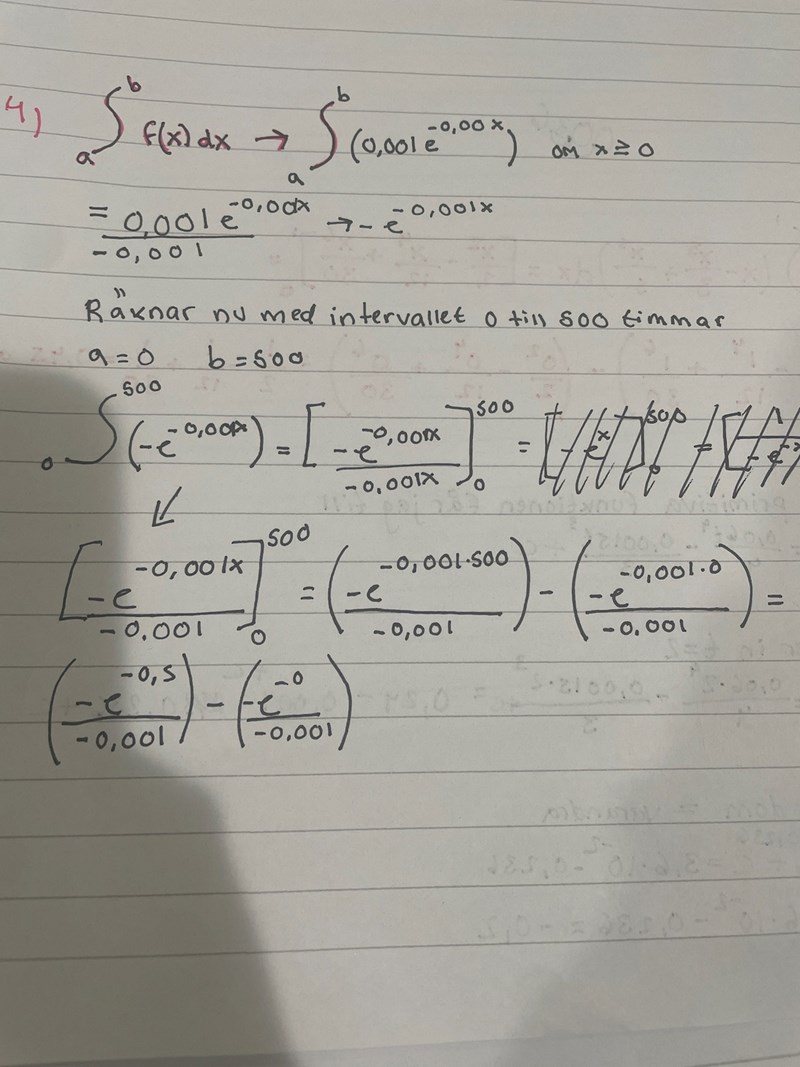 4) ∫_a^b f(x) dx → ∫_a^b (0,001 e^{-0,00x}) om x ≥ 0
= 0,001 e^{-0,001x} / -0,001 → - e^{-0,001x}
Räknar nu med intervallet 0 till 500 timmar
a = 0 b = 500
∫_0^{500} (-e^{-0,001x}) = [-e^{-0,001x} / -0,001x]_0^{500} =
[-e^{-0,001x} / -0.001]_0^{500} = (-e^{-0,001·500} / -0,001) - (-e^{-0,001·0} / -0.001) =
(-e^{-0,5} / -0,001) - (-e^{-0} / -0,001)